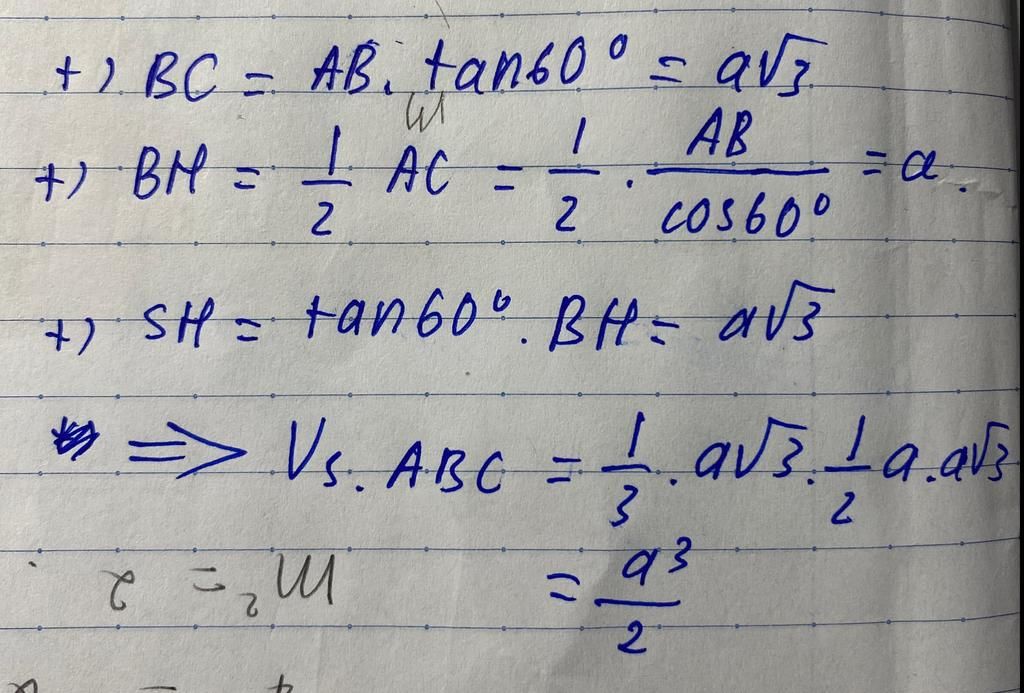 +) BC = AB. tan60° = a√3
+) BH = 1/2 AC = 1/2 . AB/cos60° = a.
+) SH = tan60°. BH = a√3
=> Vs.ABC = 1/3 . a√3 . 1/2 a.a√3
= a³/2